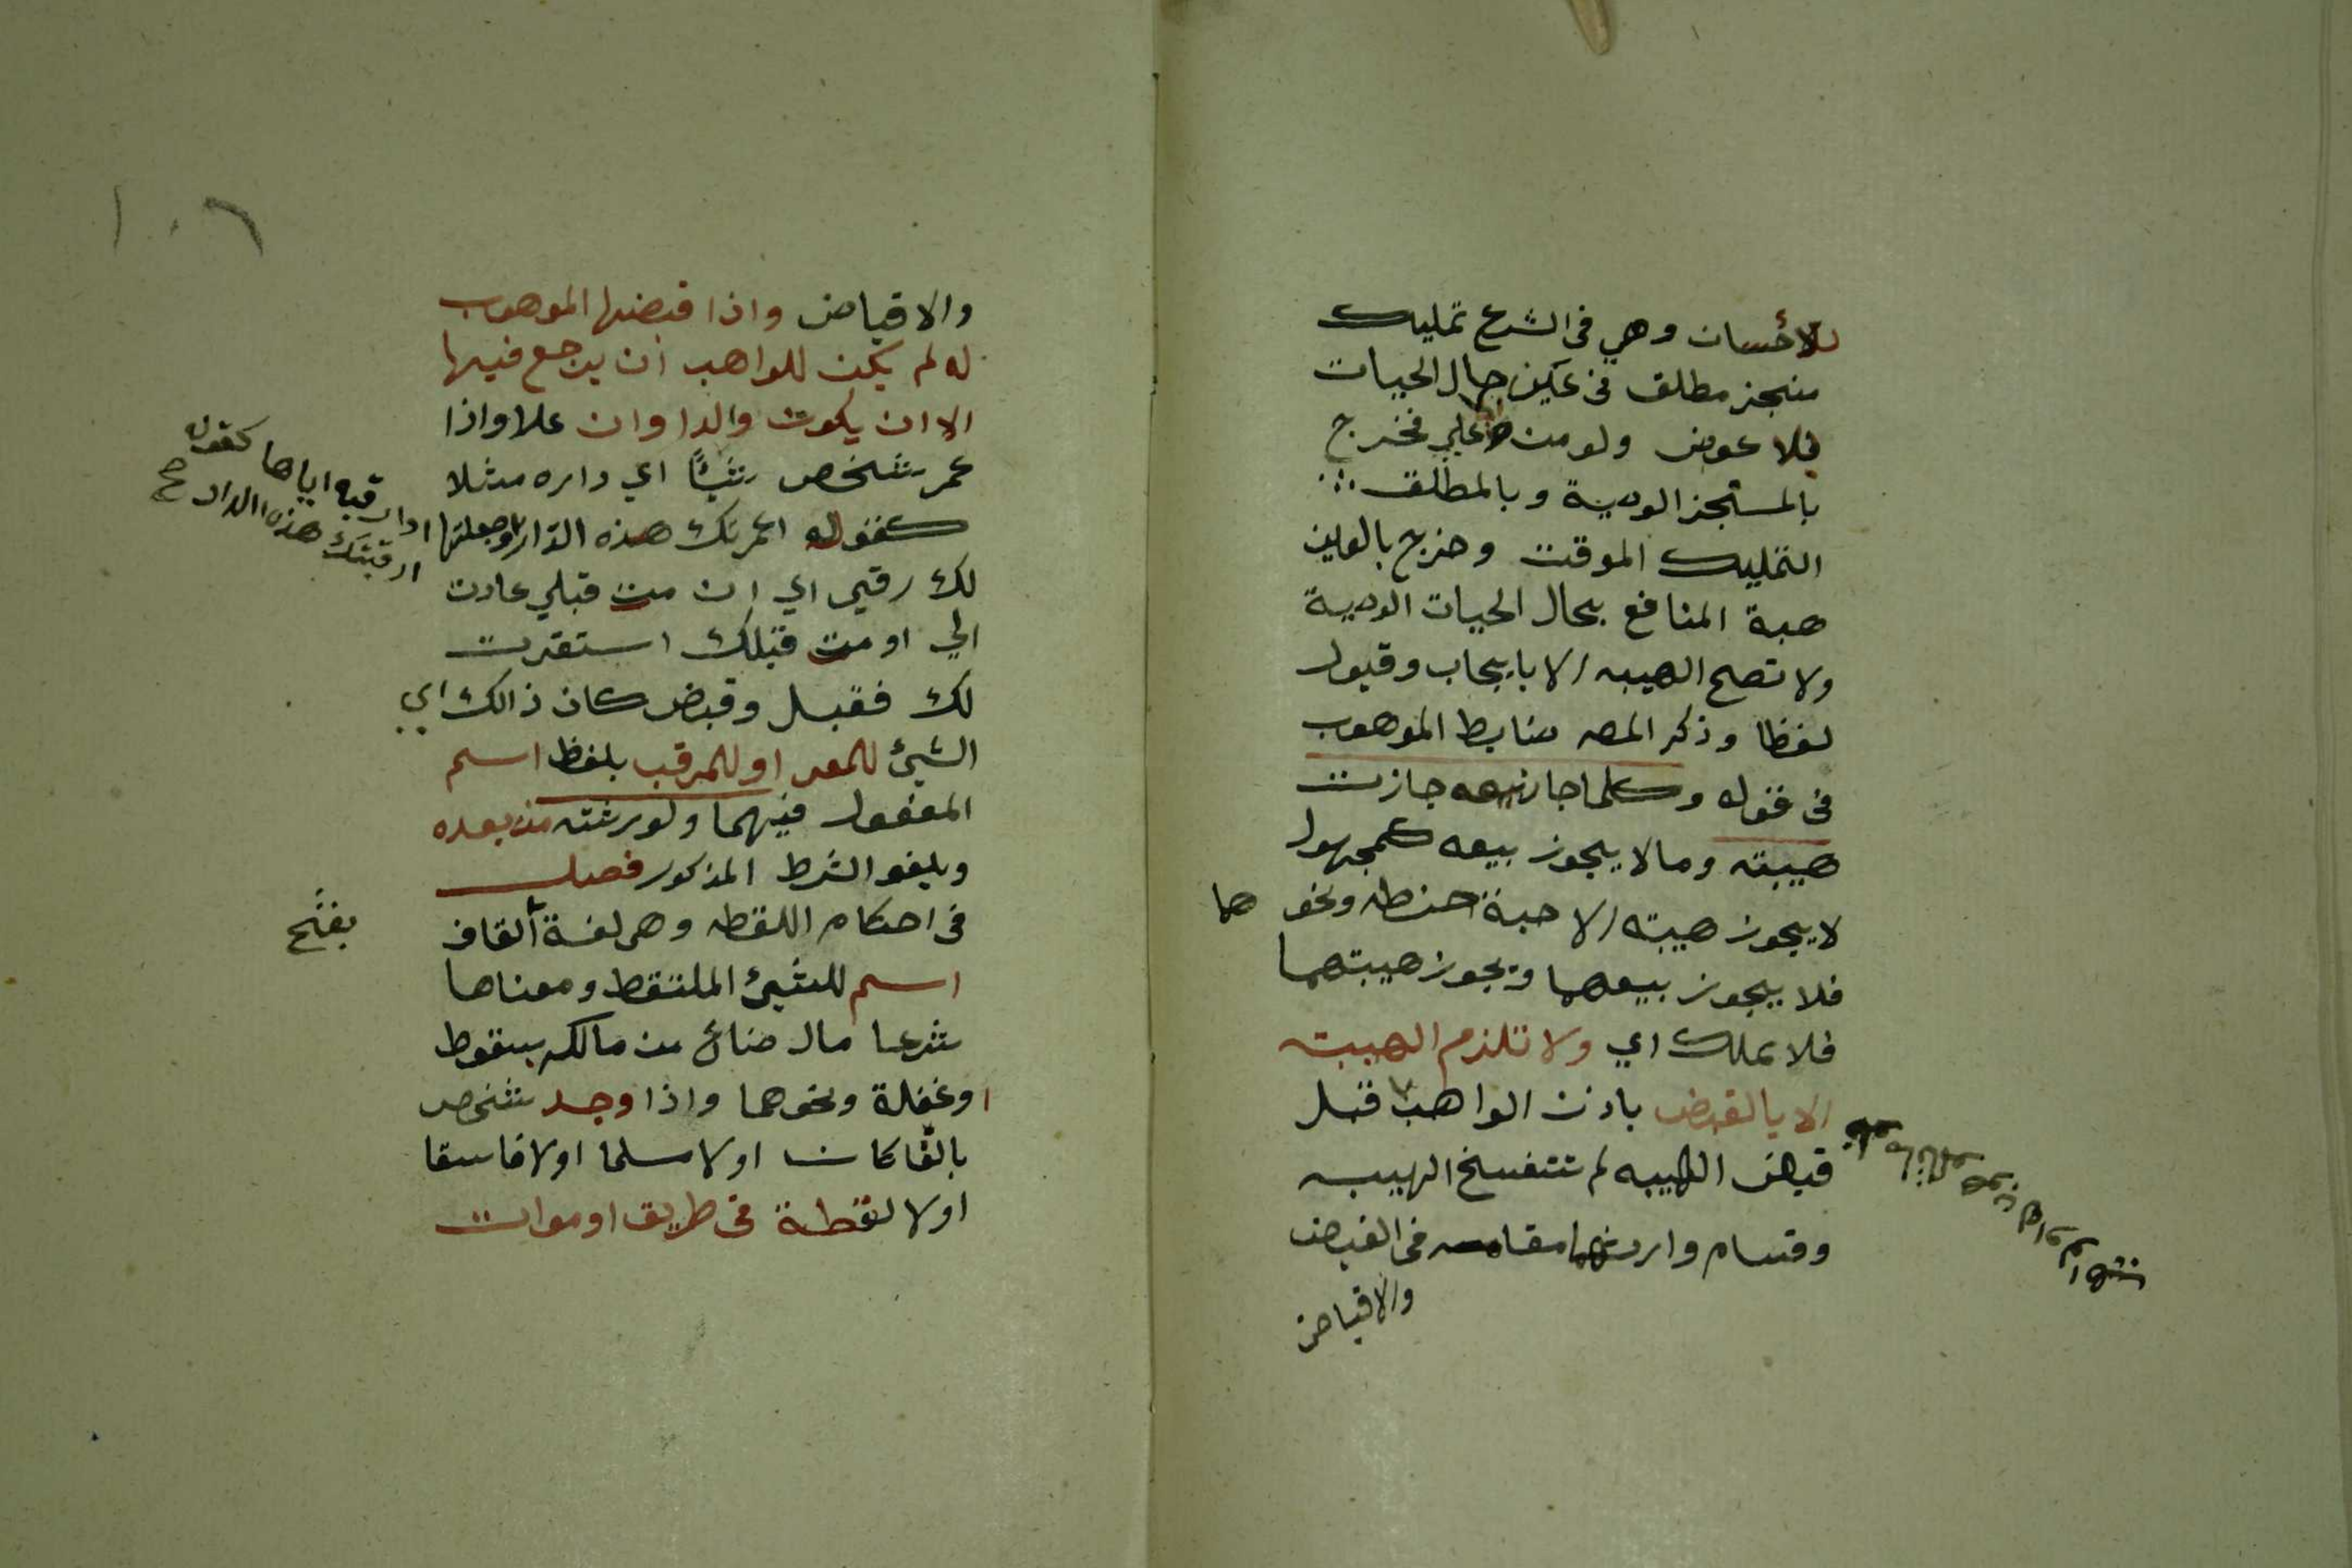 للاحسان وهي في الشرع تمليك
منجز مطلق في عين حال الحيات
بلا عوض ولو من اعلي فخرج
بالمستجز الوصية وبالمطلق
التمليك الموقت وخرج بالعين
هبة المنافع بحال الحيات الوصية
ولا تصح الهبيه الا بايجاب وقبول
لفظا وذكر المصـ ضابط الموهوب
في قوله وكلما جاز بيعه جازت
هيبته ومالا يجوز بيعه كمجهول
لا يجوز هيبته الا حبة حنطه ونحوهما
فلا يجوز بيعهما ويجوز هيبتهما
فلا تملك اي ولا تلزم الهيبته
الا بالقبض باذن الواهب قبل
قبض الهيبه لم تنفسخ الهيبه
وقام وارثهما مقامه في القبض
والاقباض
١٠٦
والاقباض واذا قبضها الموهوب
له لم يكن للواهب ان يرجع فيها
الا ان يكون والدا وان علا واذا
عمر شخص شيئًا اي داره مثلا
او ارقبه اياها كقوله
كقوله اعمرتك هذه الدار او جعلتها
ارقبتك هذه الدار صح
لك رقبي اي ان مت قبلي عادت
الي او مت قبلك استقرت
لك فقبل وقبض كان ذالك اي
الشيئ للمعمر او للمرقب بلفظ اسم
المفعول فيهما ولورثته من بعده
ويلغو الشرط المذكور فصل
في احكام اللقطه وهي لغة ألقاف
بفتح
اسم للشيئ الملتقط ومعناها
شرعا مال ضائع من مالكه بسقوط
اوغفلة ونحوهما واذا وجد شخص
بالغا كان اولا مسلما اولا فاسقا
اولا لقطة في طريق او موات